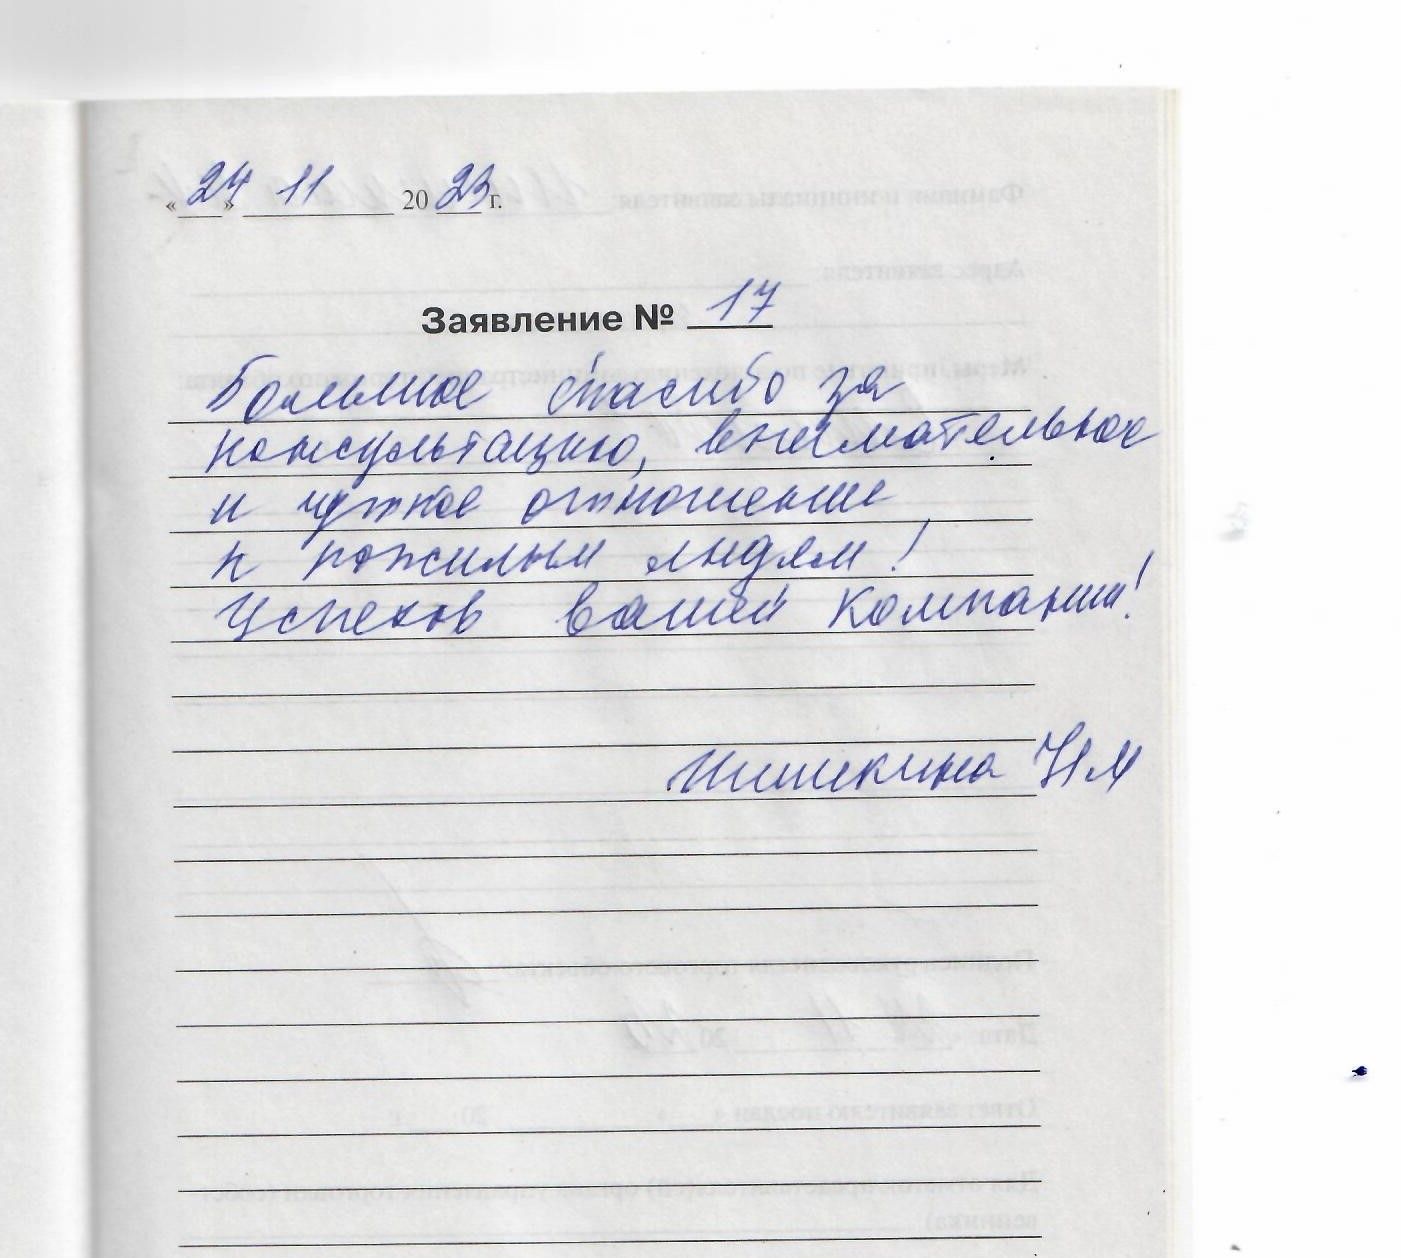 «24» 11 2023 г.
Заявление № 17
Большое спасибо за
консультацию, внимательное
и чуткое отношение
к пожилым людям!
Успехов вашей компании!
Шишкина Н М